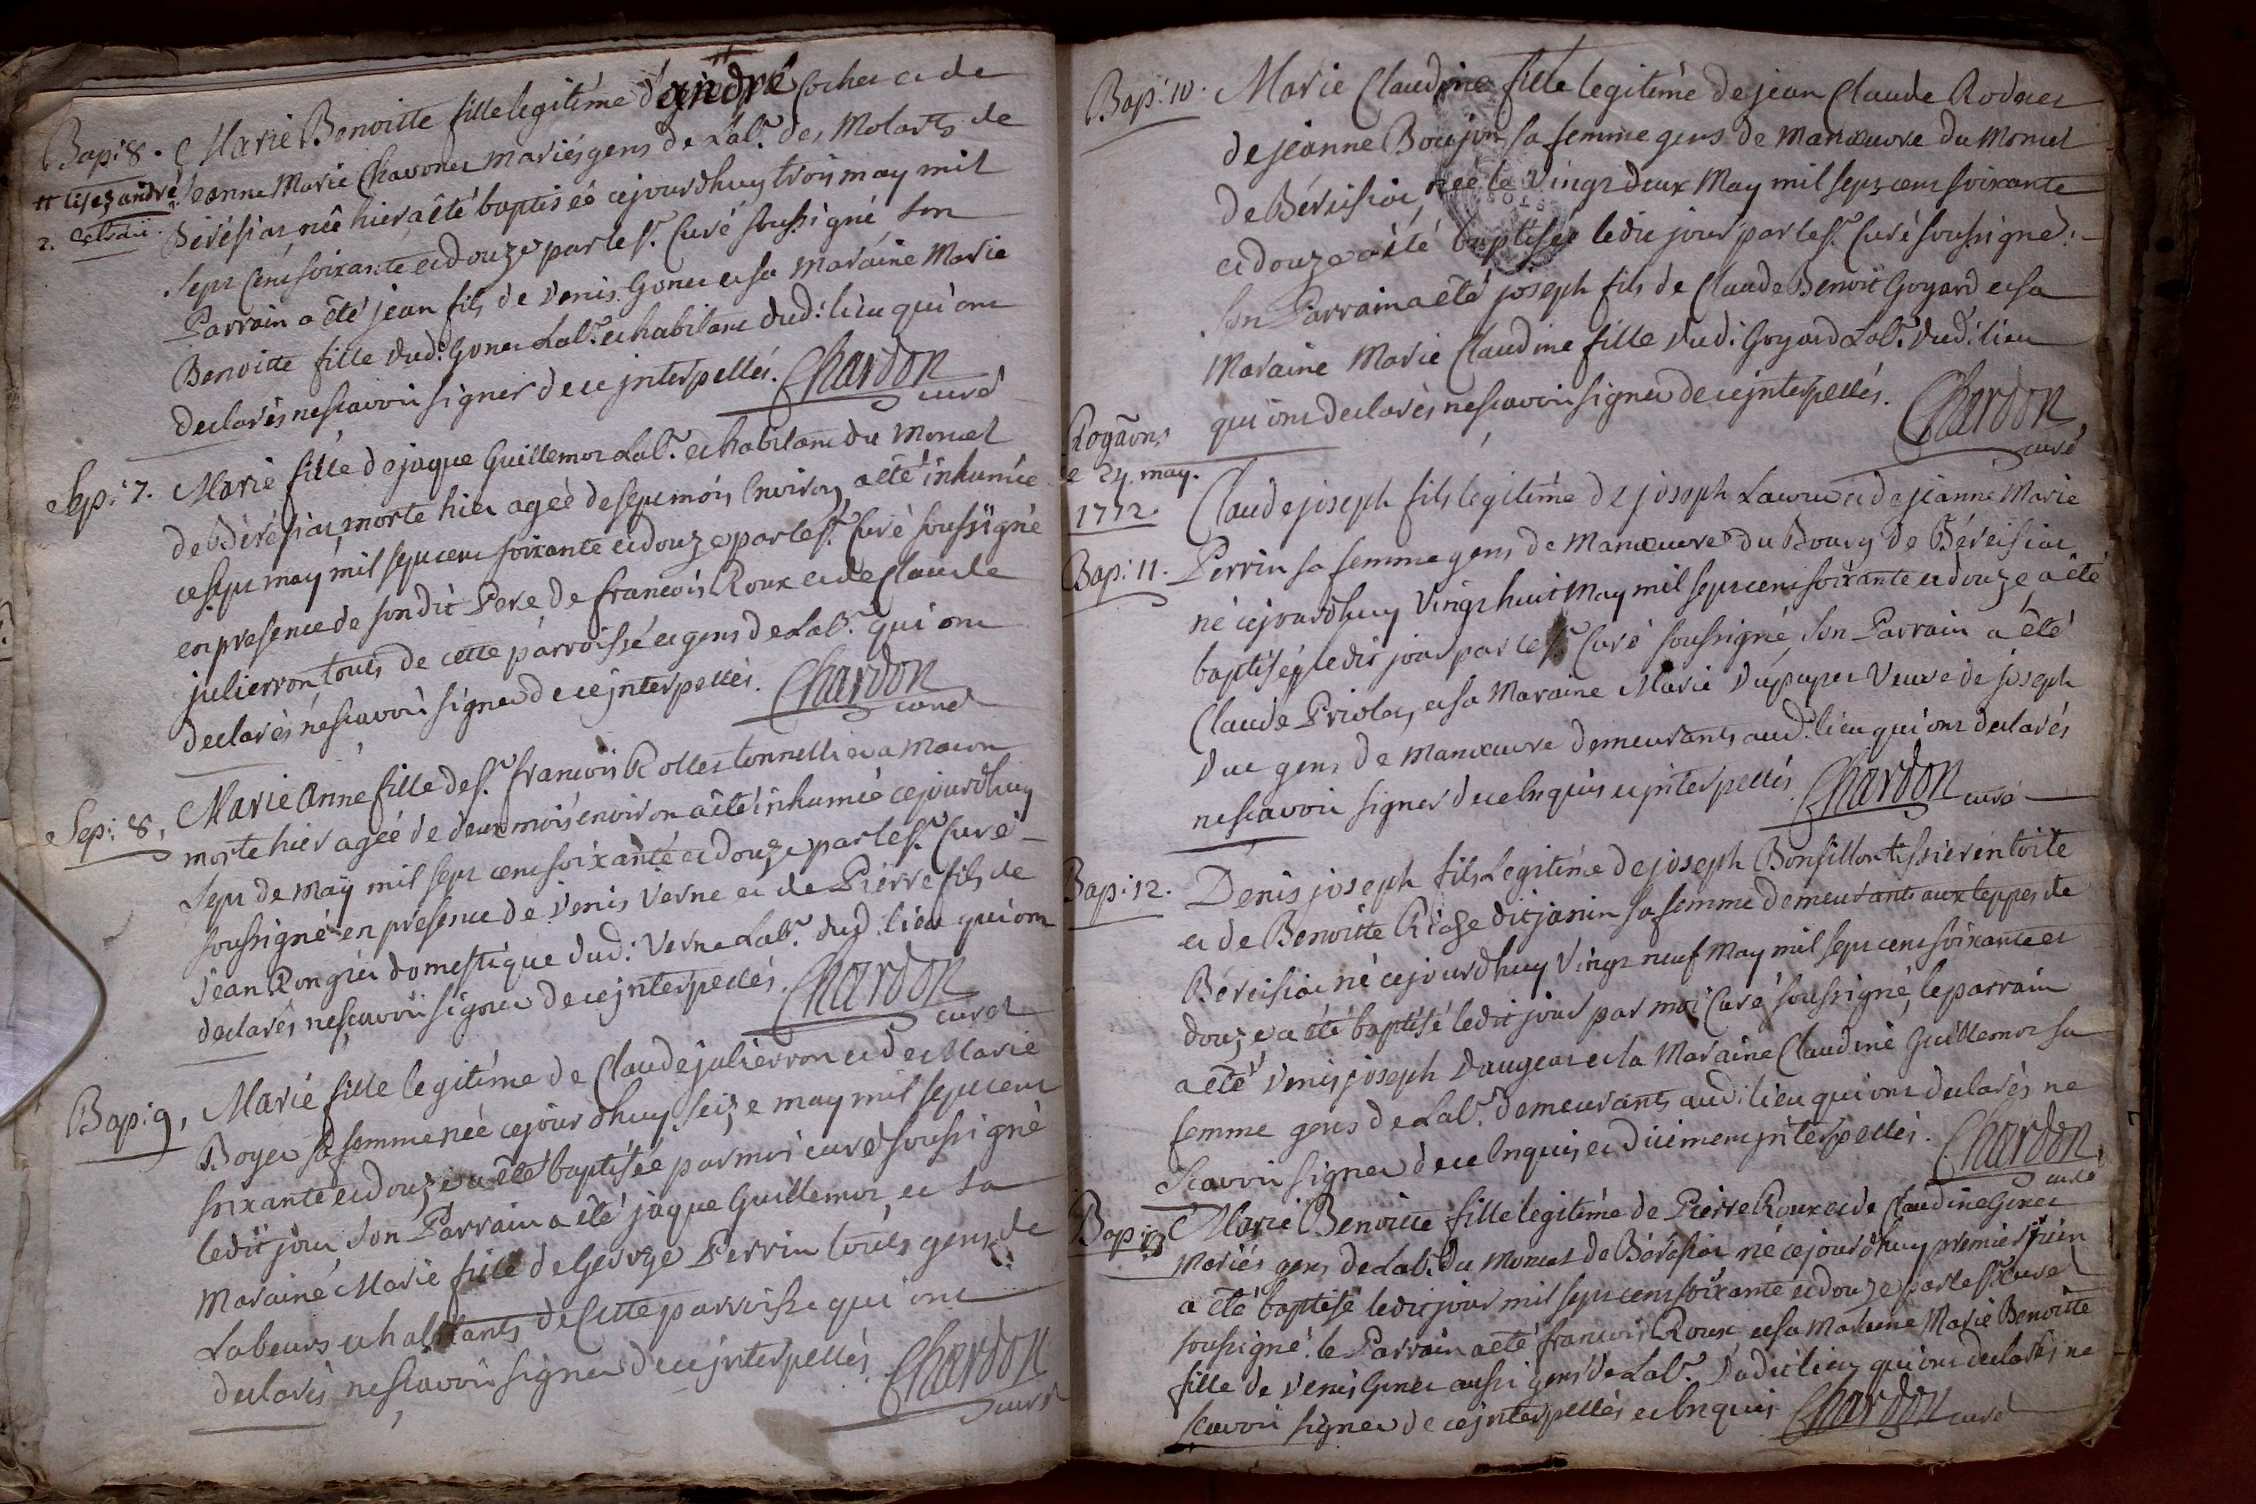 Bap: 8. Marie Benoitte fille legitime d'andré Cochet et de
# lisez andré Jeanne Marie Chavonet mariés gens de Lab.r des Molarts de
2. extrait. Béréziat née hier, a été baptiséé cejourdhuy trois may mil
Sept Cent soixante et douze par le S.r Curé soussigné, son
Parrain a été jean fils de denis Gonet et sa maraine Marie
Benoitte fille dud: Gonet Lab.r et habitant dud: lieu qui ont
declarés ne scavoir signer de ce jnterpellés. Chardon
curé
Sep: 7. Marie fille de jaque Guillemot Lab.r et habitant du Moncet
de Béréziat, morte hier ageé de sept mois Environ, a été inhumée
ce sept may mil sept cent soixante et douze par le S.r Curé soussigné
en presence de sondit Pere de francois Roux et de Claude
julierron touts de cette parroisse et gens de Lab.r qui ont
declarés ne scavoir signer de ce jnterpellés. Chardon
curé
Sep: 8. Marie Anne fille de S.r francois Rollet tonnellier a Macon
morte hier ageé de deux mois environ a été inhumée cejourdhuy
sept de may mil sept cent soixante et douze par le S.r Curé
soussigné en presence de denis Verne et de Pierre fils de
jean Rongier domestique dud: Verne Lab.r dud. lieu qui ont
declarés ne scavoir signer de ce jnterpellés. Chardon
curé
Bap: 9, Marie fille legitime de Claude julierron et de Marie
Boyer sa femme née cejourdhuy seize may mil sept cent
soixante et douze a été baptisée par moi curé soussigné
ledit jour, son Parrain a été jaque Guillemot, et sa
Maraine Marie fille de George Perrin touts gens de
Labeurs et habitants de Cette parroisse qui ont
declarés ne scavoir signer de ce jnterpellés Chardon
curé
Bap: 10. Marie Claudine fille legitime de jean Claude Rodet et
de jeanne Boujon sa femme gens de Manœuvre du Moncet
de Béreisiat, née le vingt deux May mil sept cent soixante
et douze a été baptisée ledit jour par le S.r Curé soussigné.
Son Parrain a été joseph fils de Claude Benoit Goyard et sa
Maraine Marie Claudine fille dud: Goyard Lab.r dud: lieu
qui ont declarés ne scavoir signer de ce jnterpellés. Chardon
curé
Rogaôns
le 24. may.
1772.
Claude joseph fils legitime de joseph et de jeanne Marie
Bap: 11. Perrin sa femme gens de Manœuvre du Bourg de Béreisiat
né cejourdhuy Vingt huit May mil sept cent soixante et douze, a été
baptisé ledit jour par le S.r Curé soussigné, son Parrain a été
Claude Priolet, et sa Maraine Marie Dupuget Veuve de joseph
Duc gens de Manœuvre demeurants aud. lieu qui ont declarés
ne scavoir signer de ce Enquis et jnterpellés Chardon curé
Bap: 12. Denis joseph fils Legitime de joseph Bonfillon tissier en toile
et de Benoitte Riche dit janin sa femme demeurants aux teppes de
Béreisiat né cejourdhuy Vingt neuf May mil sept cent soixante et
douze a été baptisé ledit jour par moi Curé soussigné, le parrain
a été denis joseph daugeat et la Maraine Claudine Guillemot sa
femme gens de Lab.r demeurants aud: lieu qui ont declarés ne
Scavoir signer de ce Enquis et düement jnterpellés. Chardon
curé
Bap: 13 Marie Benoitte fille legitime de Pierre Roux et de Claudine Genet
Mariés gens de Lab.r du Moncet de Béréziat né cejourdhuy premier juin
a été baptisé ledit jour mil sept cent soixante et douze par le S.r curé
soussigné. le Parrain a été francois Roux et sa Maraine Marie Benoitte
fille de denis Genet aussi gens de Lab.r dudit lieu qui ont declarés ne
scavoir signer de ce jnterpellés et Enquis Chardon curé